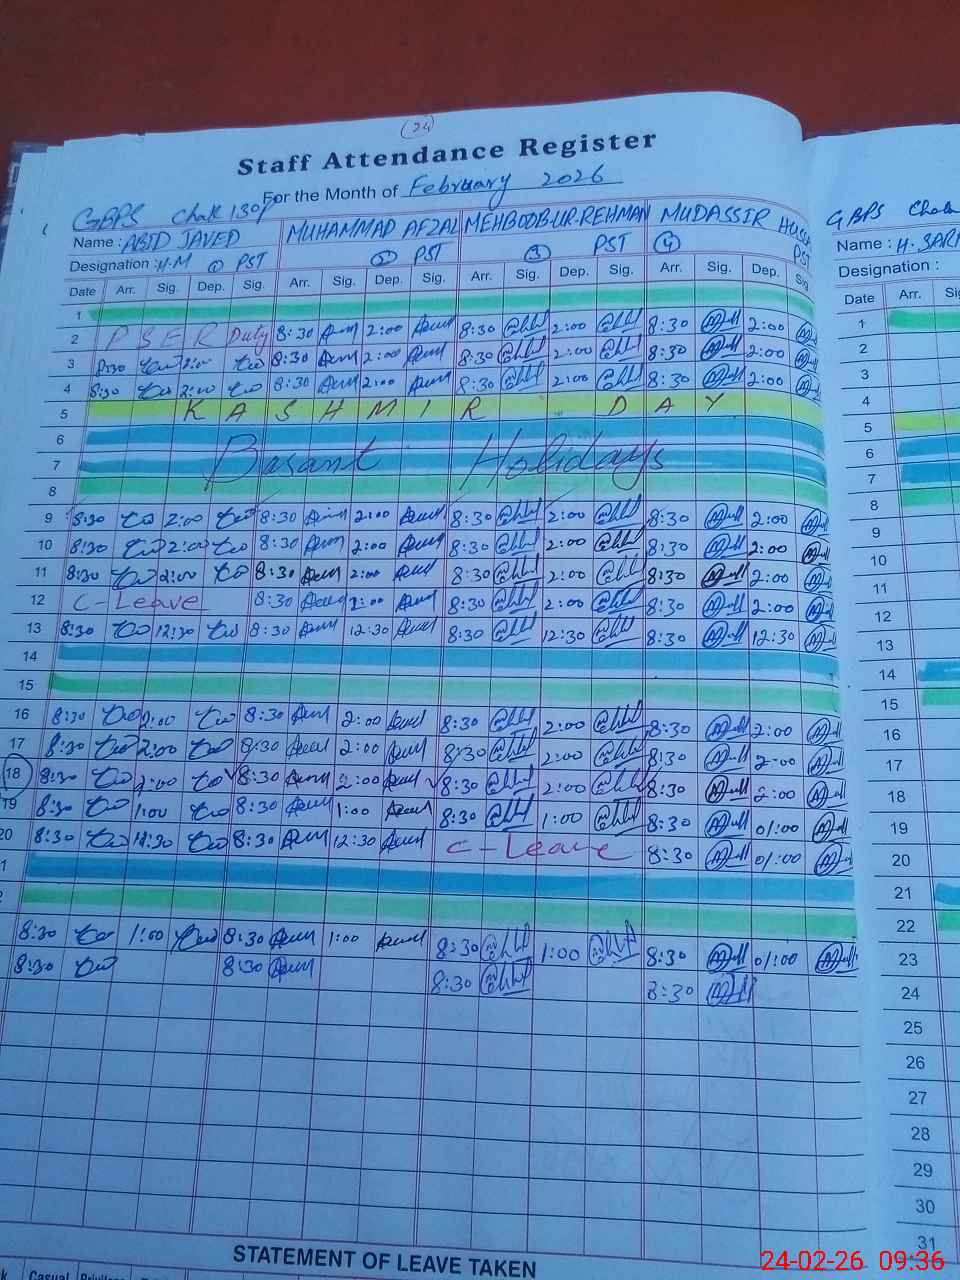 (24)
Staff Attendance Register
For the Month of February 2026
GBPS Chak 130P
Name : ABID JAVED MUHAMMAD AFZAL MEHBOOB-UR-REHMAN MUDASSIR
Designation : H.M ① PST ② PST ③ PST ④ PST
Date Arr. Sig. Dep. Sig. Arr. Sig. Dep. Sig. Arr. Sig. Dep. Sig. Arr. Sig. Dep. Sig.
1
2 PSER Duty 8:30 2:00 8:30 2:00 8:30 2:00
3 8:30 2:00 8:30 2:00 8:30 2:00 8:30 2:00
4 8:30 2:00 8:30 2:00 8:30 2:00 8:30 2:00
5 KASHMIR DAY
6
7 Basant Holidays
8
9 8:30 2:00 8:30 2:00 8:30 2:00 8:30 2:00
10 8:30 2:00 8:30 2:00 8:30 2:00 8:30 2:00
11 8:30 2:00 8:30 2:00 8:30 2:00 8:30 2:00
12 C-Leave 8:30 2:00 8:30 2:00 8:30 2:00
13 8:30 12:30 8:30 12:30 8:30 12:30 8:30 12:30
14
15
16 8:30 2:00 8:30 2:00 8:30 2:00 8:30 2:00
17 8:30 2:00 8:30 2:00 8:30 2:00 8:30 2:00
18 8:30 2:00 8:30 2:00 8:30 2:00 8:30 2:00
19 8:30 1:00 8:30 1:00 8:30 1:00 8:30 01:00
20 8:30 12:30 8:30 12:30 C-Leave 8:30 01:00
21
22
8:30 1:00 8:30 1:00 8:30 1:00 8:30 01:00 23
8:30 8:30 8:30 8:30 24
25
26
27
28
29
30
31
STATEMENT OF LEAVE TAKEN
Casual
GBPS Chak
Name : H.
Designation :
Date Arr.
1
2
3
4
5
6
7
8
9
10
11
12
13
14
15
16
17
18
19
20
21
22
24-02-26 09:36